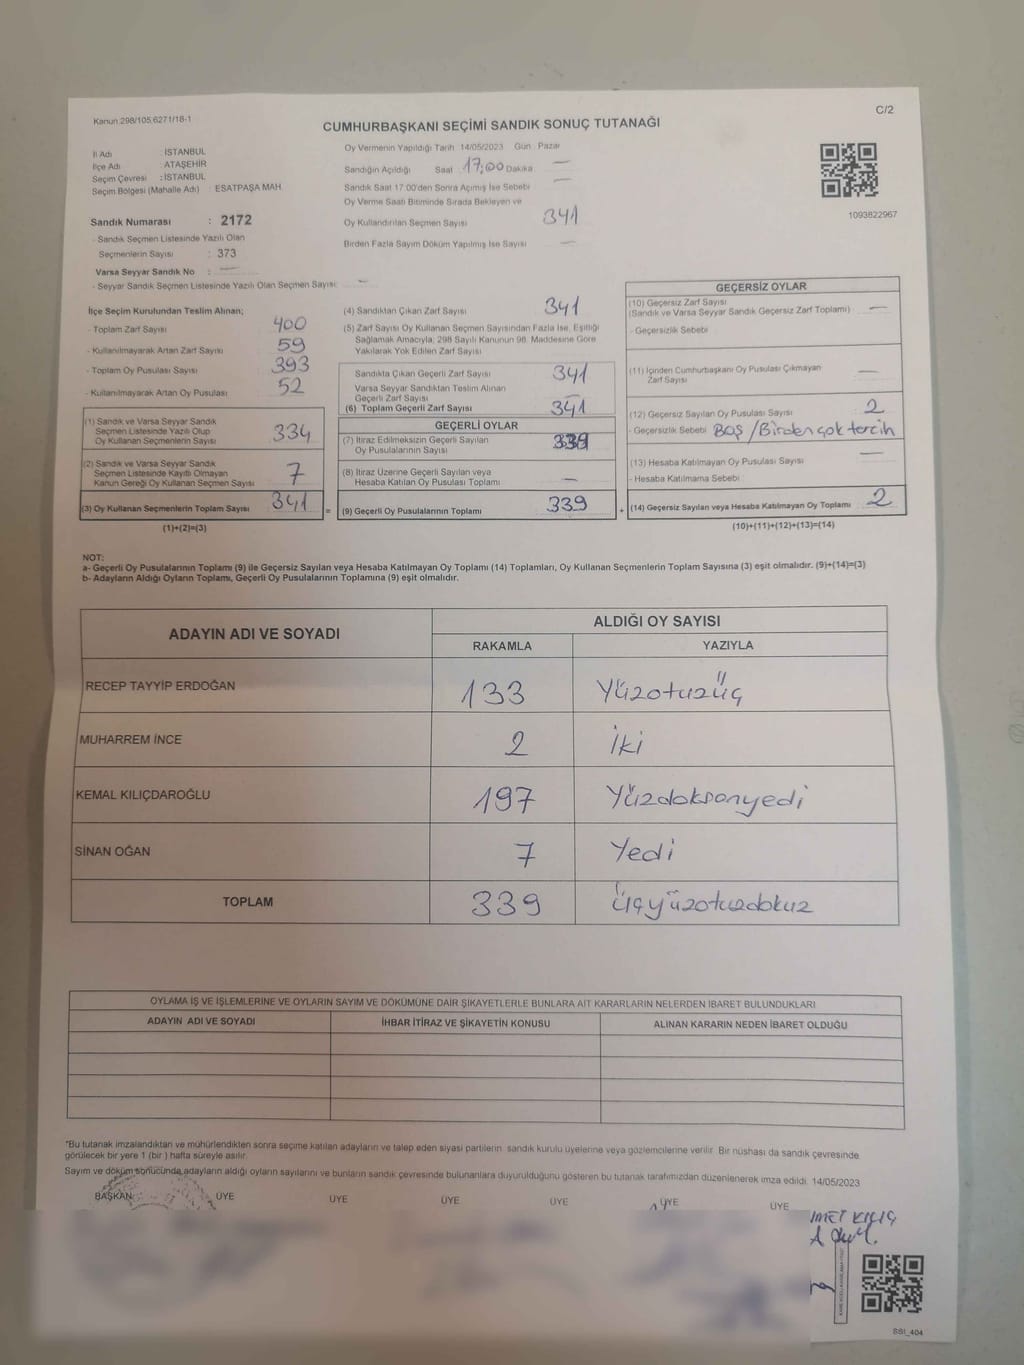 Kanun:298/105,6271/18-1
C/2
CUMHURBAŞKANI SEÇİMİ SANDIK SONUÇ TUTANAĞI
İl Adı : İSTANBUL
İlçe Adı : ATAŞEHİR
Seçim Çevresi : İSTANBUL
Seçim Bölgesi (Mahalle Adı) : ESATPAŞA MAH.
Sandık Numarası : 2172
- Sandık Seçmen Listesinde Yazılı Olan
Seçmenlerin Sayısı : 373
Varsa Seyyar Sandık No : —
- Seyyar Sandık Seçmen Listesinde Yazılı Olan Seçmen Sayısı: —
Oy Vermenin Yapıldığı Tarih 14/05/2023 Gün Pazar
Sandığın Açıldığı Saat 17,00 Dakika —
Sandık Saat 17.00'den Sonra Açılmış İse Sebebi —
Oy Verme Saati Bitiminde Sırada Bekleyen ve
Oy Kullandırılan Seçmen Sayısı 341
Birden Fazla Sayım Döküm Yapılmış İse Sayısı —
1093822967
İlçe Seçim Kurulundan Teslim Alınan;
- Toplam Zarf Sayısı 400
- Kullanılmayarak Artan Zarf Sayısı 59
- Toplam Oy Pusulası Sayısı 393
- Kullanılmayarak Artan Oy Pusulası 52
(1) Sandık ve Varsa Seyyar Sandık
Seçmen Listesinde Yazılı Olup
Oy Kullanan Seçmenlerin Sayısı 334
(2) Sandık ve Varsa Seyyar Sandık
Seçmen Listesinde Kayıtlı Olmayan
Kanun Gereği Oy Kullanan Seçmen Sayısı 7
(3) Oy Kullanan Seçmenlerin Toplam Sayısı 341
(1)+(2)=(3)
(4) Sandıktan Çıkan Zarf Sayısı 341
(5) Zarf Sayısı Oy Kullanan Seçmen Sayısından Fazla İse, Eşitliği
Sağlamak Amacıyla, 298 Sayılı Kanunun 98. Maddesine Göre
Yakılarak Yok Edilen Zarf Sayısı
Sandıkta Çıkan Geçerli Zarf Sayısı 341
Varsa Seyyar Sandıktan Teslim Alınan
Geçerli Zarf Sayısı —
(6) Toplam Geçerli Zarf Sayısı 341
GEÇERLİ OYLAR
(7) İtiraz Edilmeksizin Geçerli Sayılan
Oy Pusulalarının Sayısı 339
(8) İtiraz Üzerine Geçerli Sayılan veya
Hesaba Katılan Oy Pusulası Toplamı —
=
(9) Geçerli Oy Pusulalarının Toplamı 339
+
GEÇERSİZ OYLAR
(10) Geçersiz Zarf Sayısı
(Sandık ve Varsa Seyyar Sandık Geçersiz Zarf Toplamı) —
- Geçersizlik Sebebi
(11) İçinden Cumhurbaşkanı Oy Pusulası Çıkmayan
Zarf Sayısı —
(12) Geçersiz Sayılan Oy Pusulası Sayısı 2
- Geçersizlik Sebebi BOŞ / Birden çok tercih
(13) Hesaba Katılmayan Oy Pusulası Sayısı —
- Hesaba Katılmama Sebebi
(14) Geçersiz Sayılan veya Hesaba Katılmayan Oy Toplamı 2
(10)+(11)+(12)+(13)=(14)
NOT:
a- Geçerli Oy Pusulalarının Toplamı (9) ile Geçersiz Sayılan veya Hesaba Katılmayan Oy Toplamı (14) Toplamları, Oy Kullanan Seçmenlerin Toplam Sayısına (3) eşit olmalıdır. (9)+(14)=(3)
b- Adayların Aldığı Oyların Toplamı, Geçerli Oy Pusulalarının Toplamına (9) eşit olmalıdır.
ADAYIN ADI VE SOYADI
ALDIĞI OY SAYISI
RAKAMLA YAZIYLA
RECEP TAYYİP ERDOĞAN 133 Yüzotuzüç
MUHARREM İNCE 2 İki
KEMAL KILIÇDAROĞLU 197 Yüzdoksanyedi
SİNAN OĞAN 7 Yedi
TOPLAM 339 Üçyüzotuzdokuz
OYLAMA İŞ VE İŞLEMLERİNE VE OYLARIN SAYIM VE DÖKÜMÜNE DAİR ŞİKAYETLERLE BUNLARA AİT KARARLARIN NELERDEN İBARET BULUNDUKLARI
ADAYIN ADI VE SOYADI İHBAR İTİRAZ VE ŞİKAYETİN KONUSU ALINAN KARARIN NEDEN İBARET OLDUĞU
*Bu tutanak imzalandıktan ve mühürlendikten sonra seçime katılan adayların ve talep eden siyasi partilerin sandık kurulu üyelerine veya gözlemcilerine verilir. Bir nüshası da sandık çevresinde
görülecek bir yere 1 (bir ) hafta süreyle asılır.
Sayım ve döküm sonucunda adayların aldığı oyların sayılarını ve bunların sandık çevresinde bulunanlara duyurulduğunu gösteren bu tutanak tarafımızdan düzenlenerek imza edildi. 14/05/2023
BAŞKAN ÜYE ÜYE ÜYE ÜYE ÜYE ÜYE
SSI_404